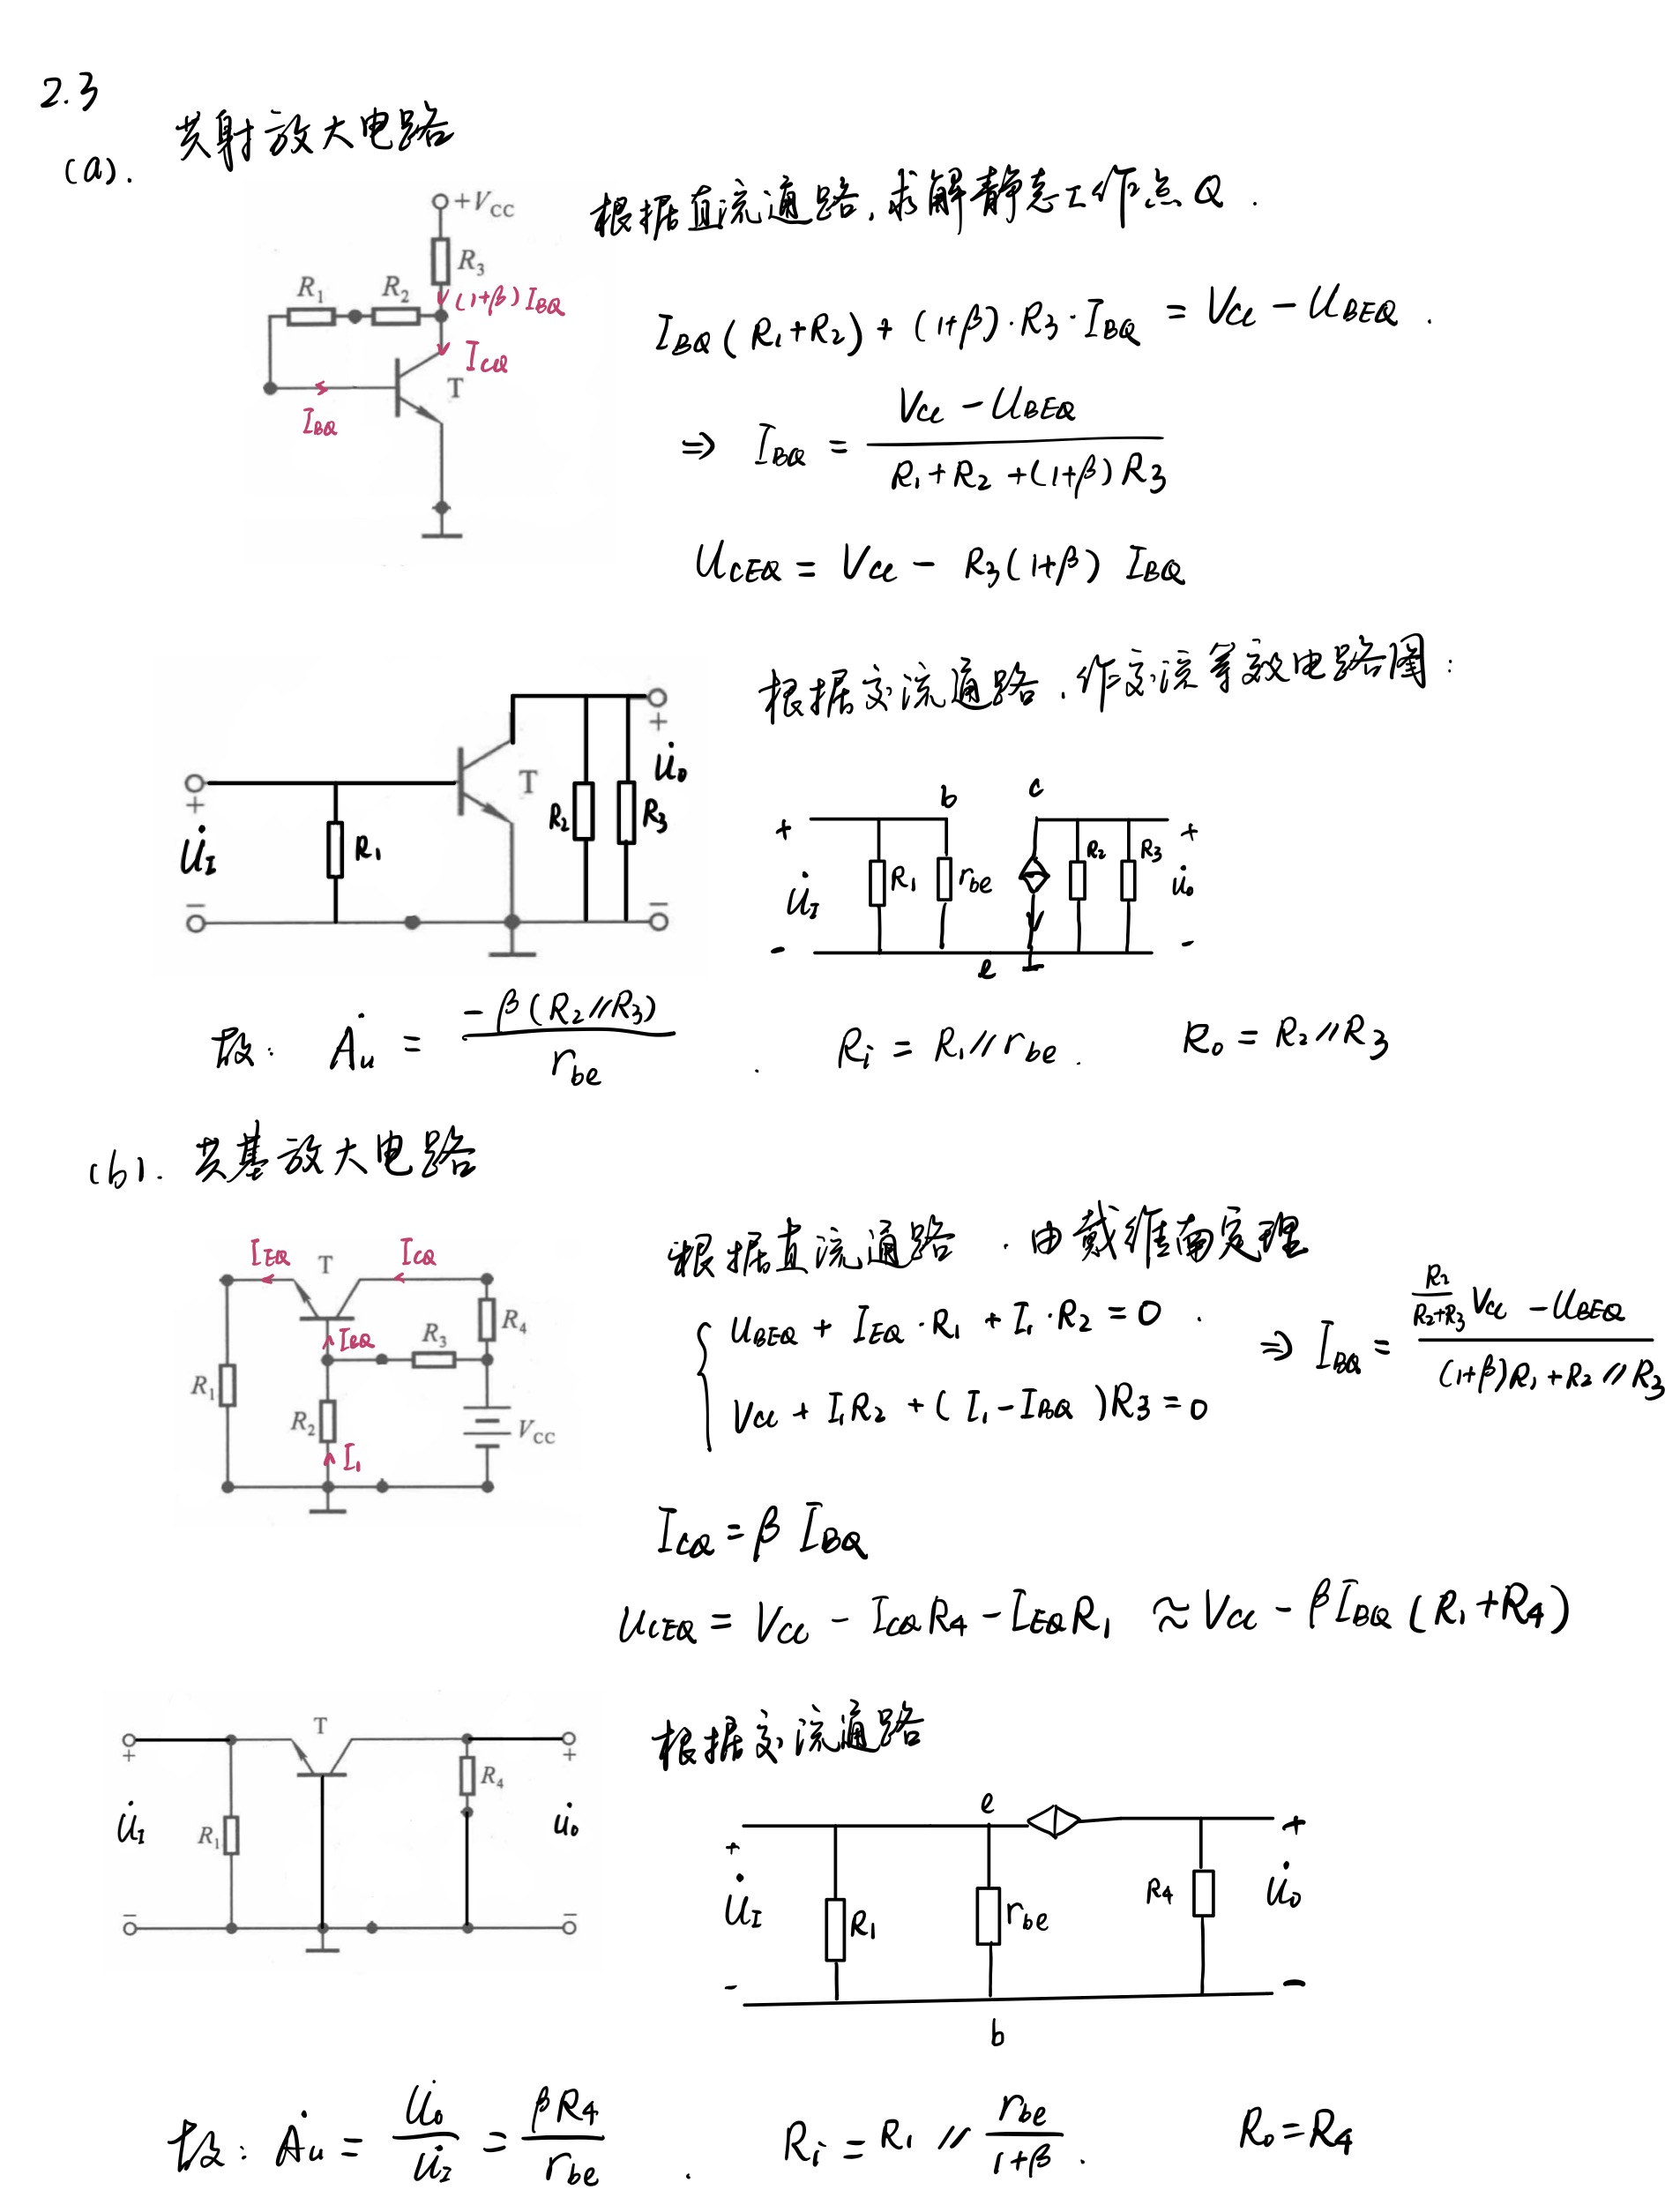 2.3
(a). 共射放大电路
+V_CC
R_3
R_1 R_2 (1+β)I_BQ
I_CQ
T
I_BQ
根据直流通路,求解静态工作点Q.
I_BQ(R_1+R_2)+(1+β)·R_3·I_BQ = V_CC - U_BEQ.
⇒ I_BQ = (V_CC - U_BEQ)/(R_1+R_2+(1+β)R_3)
U_CEQ = V_CC - R_3(1+β) I_BQ
根据交流通路,作交流等效电路图:
+ U̇_I - R_1 T R_2 R_3 + u̇_o -
+ U̇_I - R_1 b r_be c e R_2 R_3 + u̇_o -
故: Ȧ_u = -β(R_2//R_3)/r_be. R_i = R_1//r_be. R_o = R_2//R_3
(b). 共基放大电路
I_EQ T I_CQ
R_4
I_BQ R_3
R_1
R_2 V_CC
I_1
根据直流通路.由戴维南定理
{ U_BEQ + I_EQ·R_1 + I_1·R_2 = 0.
V_CC + I_1R_2 + (I_1-I_BQ)R_3 = 0
⇒ I_BQ = (R_2/(R_2+R_3) V_CC - U_BEQ)/((1+β)R_1+R_2//R_3)
I_CQ = β I_BQ
U_CEQ = V_CC - I_CQR_4 - I_EQR_1 ≈ V_CC - βI_BQ(R_1+R_4)
根据交流通路
+ U̇_I - R_1 T R_4 + u̇_o -
+ U̇_I - R_1 e r_be b R_4 + U̇_o -
故: Ȧ_u = U̇_o/U̇_I = βR_4/r_be. R_i = R_1 // r_be/(1+β). R_o = R_4